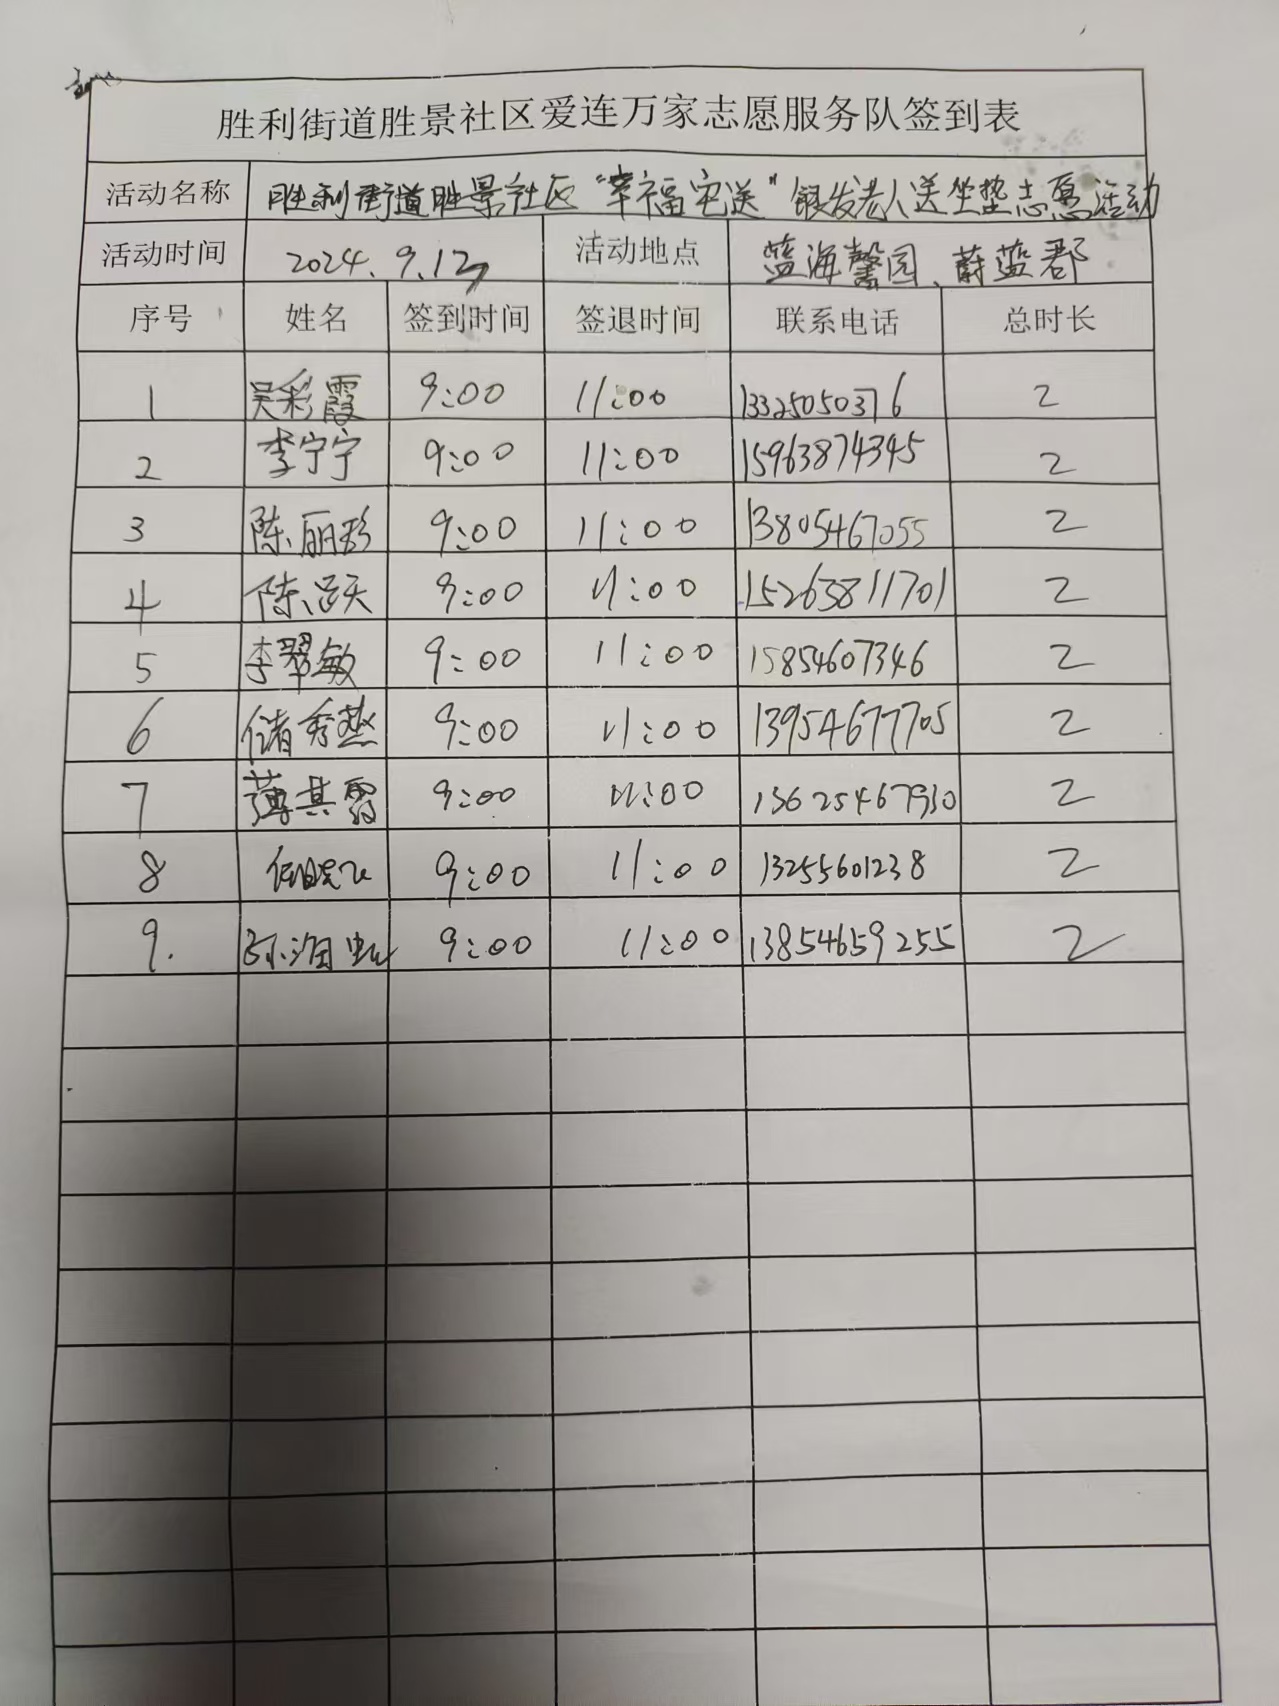 胜利街道胜景社区爱连万家志愿服务队签到表
活动名称 胜利街道胜景社区“幸福宅送”银发老人送坐垫志愿活动
活动时间 2024.9.12 活动地点 蓝海馨园、蔚蓝郡
序号 姓名 签到时间 签退时间 联系电话 总时长
1 吴彩霞 9:00 11:00 13325050376 2
2 李宁宁 9:00 11:00 15963874345 2
3 陈丽珍 9:00 11:00 13805467055 2
4 9:00 11:00 15263811701 2
5 李翠敏 9:00 11:00 15854607346 2
6 储秀燕 9:00 11:00 13954677705 2
7 薄其霞 9:00 11:00 13625467930 2
8 9:00 11:00 13255601238 2
9. 9:00 11:00 13854659255 2